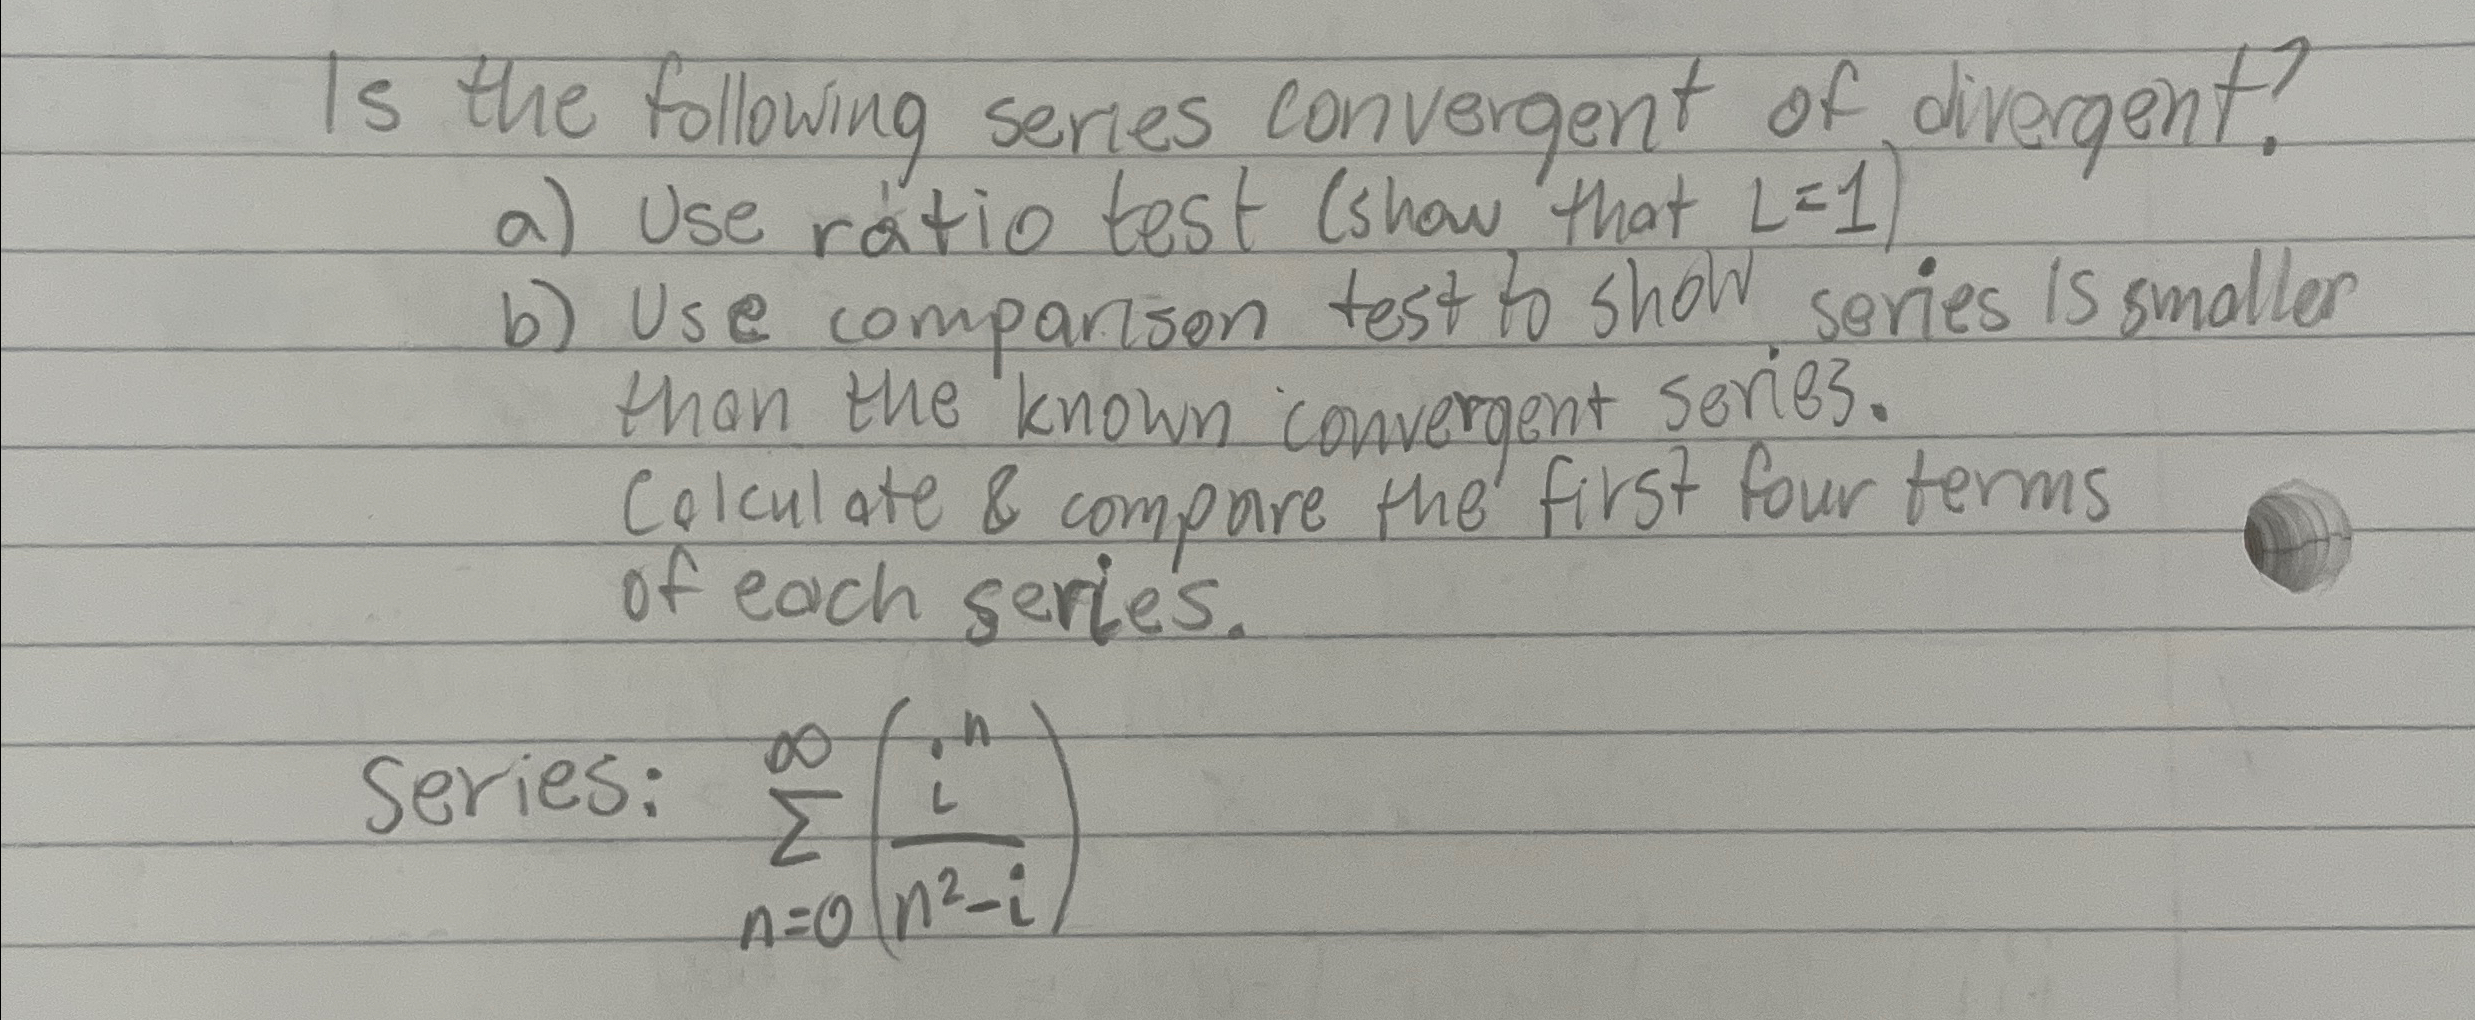 Is the following series convergent of divergent?
a) Use ratio test (show that L=1)
b) Use comparison test to show series is smaller
than the known convergent series.
Calculate & compare the first four terms
of each series.
Series: ∞ Σ n=0 (i^n / n²-i)